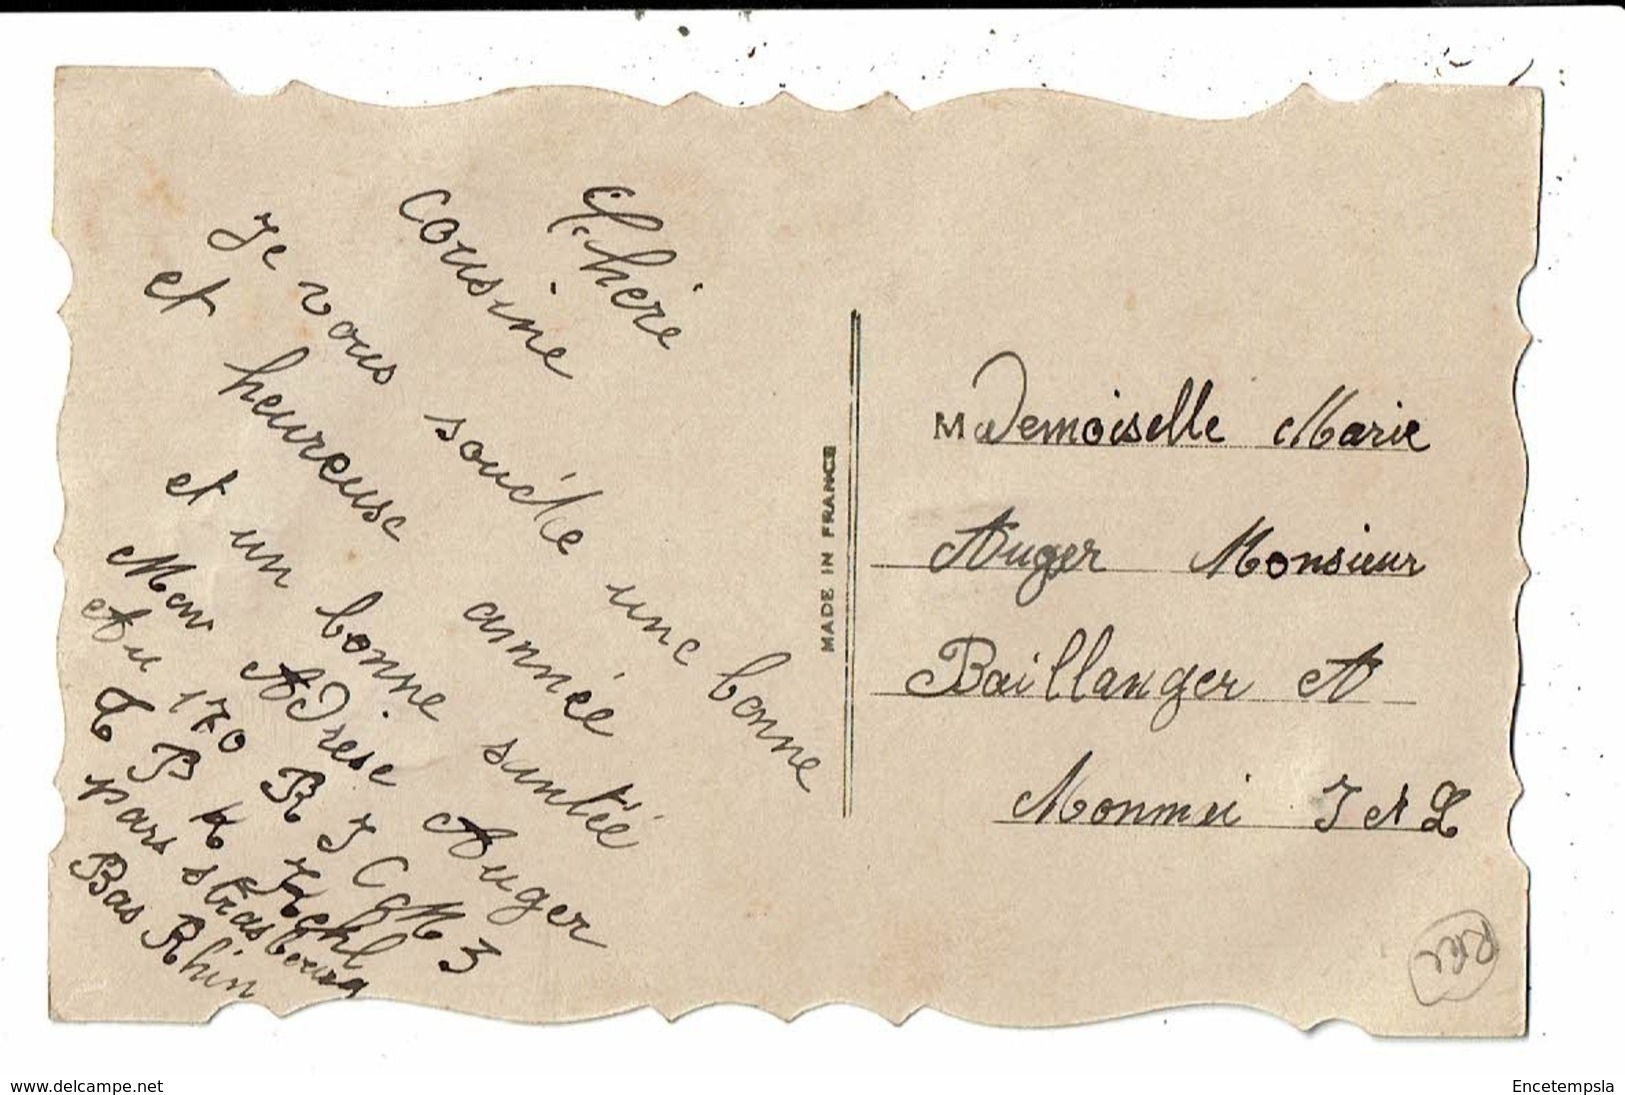 Chère
cousine
Je vous souéte une bonne
et heureuse année
et un bonne santée
Mon Adrese Auger
Au 170 R J C gM 3
C P K Kehl
pars strasbourg
Bas Rhin
MADE IN FRANCE
Mademoiselle Marie
Auger Monsieur
Baillanger A
Monmri J et L
www.delcampe.net
Encetempsla